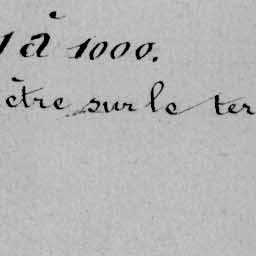 1 à 1000.
être sur le ter